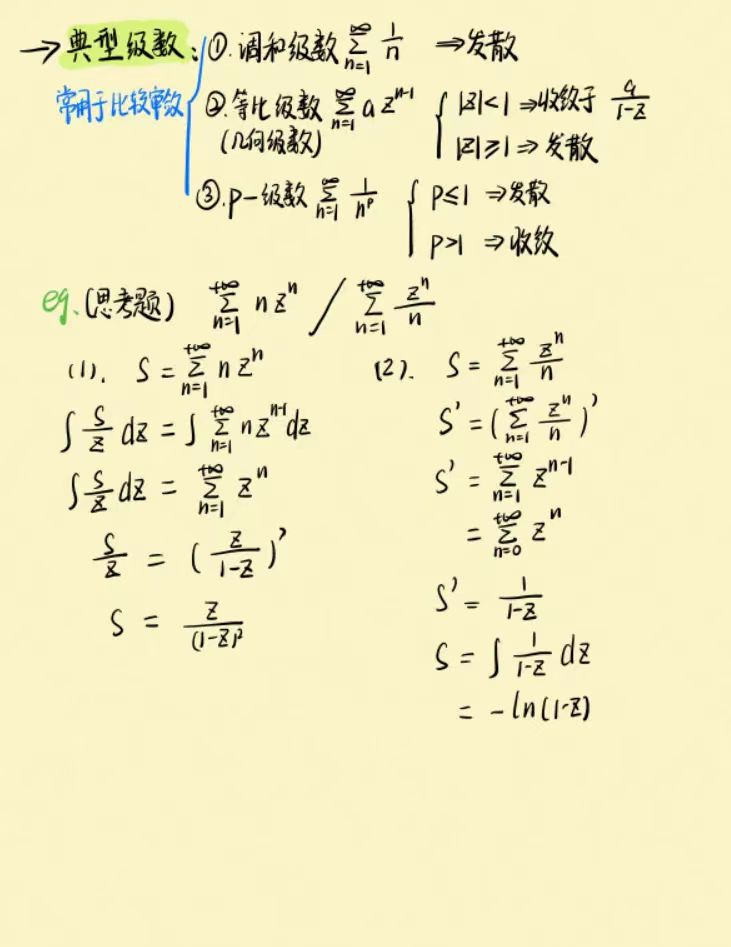 → 典型级数: ①.调和级数 ∑_{n=1}^{∞} 1/n ⇒发散
常用于比较审敛
②.等比级数 ∑_{n=1}^{∞} a z^{n-1} { |z|<1 ⇒收敛于 a/(1-z)
(几何级数) |z|≥1 ⇒ 发散
③.p-级数 ∑_{n=1}^{∞} 1/n^p { p≤1 ⇒发散
p>1 ⇒收敛
eg.(思考题) ∑_{n=1}^{+∞} n z^n / ∑_{n=1}^{+∞} z^n/n
(1). S = ∑_{n=1}^{+∞} n z^n
∫ S/z dz = ∫ ∑_{n=1}^{+∞} n z^{n-1} dz
∫ S/z dz = ∑_{n=1}^{+∞} z^n
S/z = (z/(1-z))'
S = z/(1-z)²
(2). S = ∑_{n=1}^{+∞} z^n/n
S' = (∑_{n=1}^{+∞} z^n/n)'
S' = ∑_{n=1}^{+∞} z^{n-1}
= ∑_{n=0}^{+∞} z^n
S' = 1/(1-z)
S = ∫ 1/(1-z) dz
= -ln(1-z)